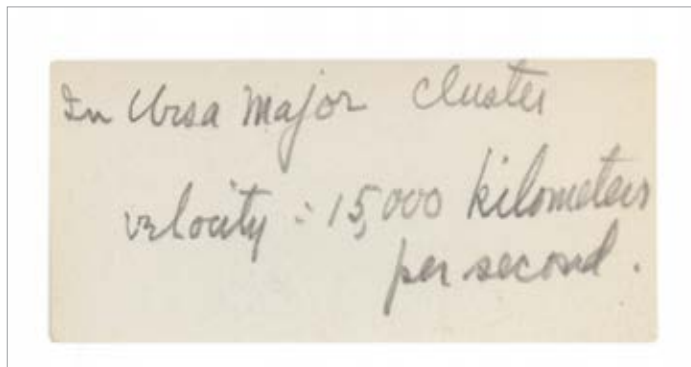 In Ursa Major Cluster
velocity = 15,000 kilometers
per second.